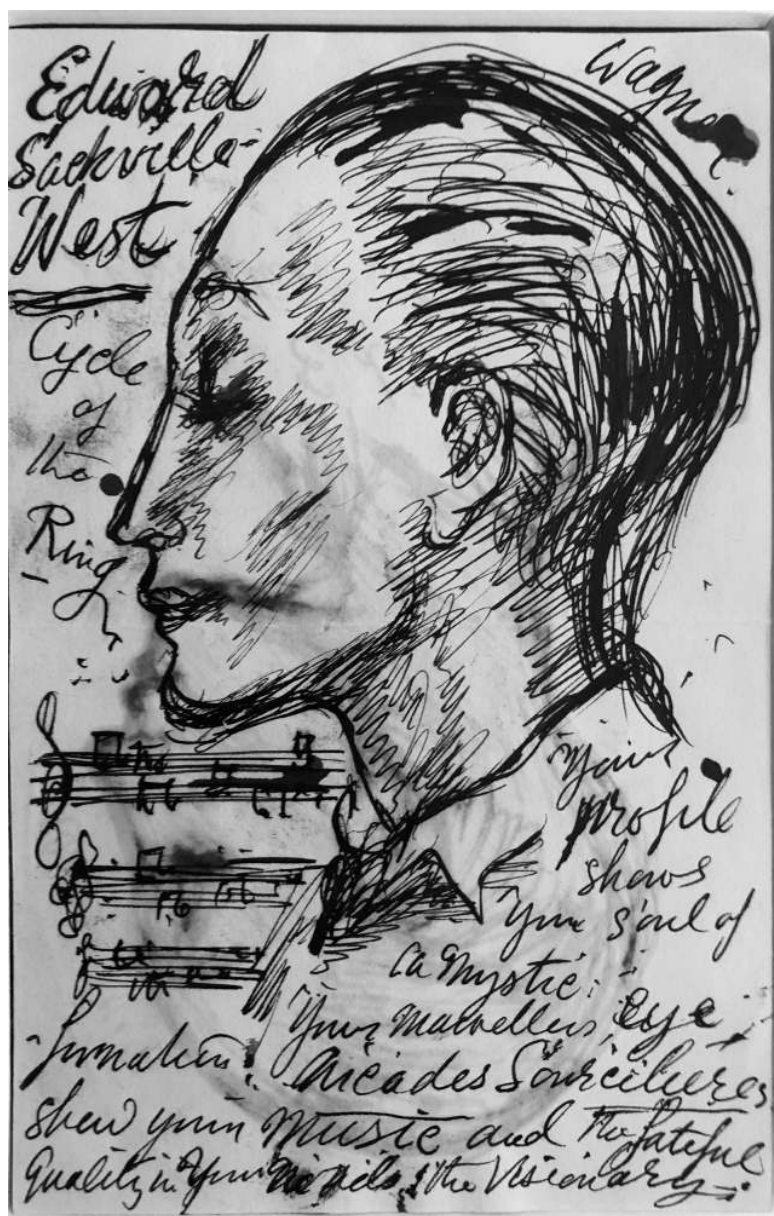 Edward
Sackville-
West
Wagner.
Cycle
of
the
Ring
Your
profile
shows
your soul of
a mystic:
Your marvellous eye
formation! Arcades Sourcilières
shew your music and the fateful
quality in your novels: the Visionary: